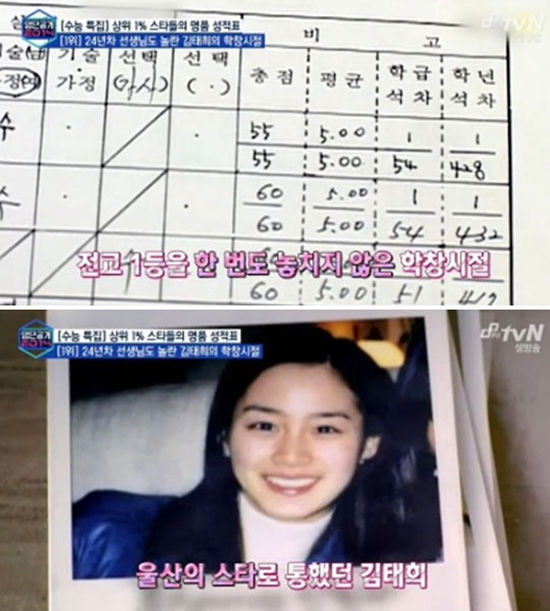 명단공개 2014
[수능 특집] 상위 1% 스타들의 명품 성적표
[1위] 24년차 선생님도 놀란 김태희의 학창시절
tvN
비 고
기술 선택 선택
가정 (가사) ( . )
총점 평균 학급석차 학년석차
수 55/55 5.00/5.00 1/54 1/428
수 60/60 5.00/5.00 1/54 1/432
60 5.00 51
전교 1등을 한 번도 놓치지 않은 학창시절
명단공개 2014
[수능 특집] 상위 1% 스타들의 명품 성적표
[1위] 24년차 선생님도 놀란 김태희의 학창시절
tvN
생방송
울산의 스타로 통했던 김태희